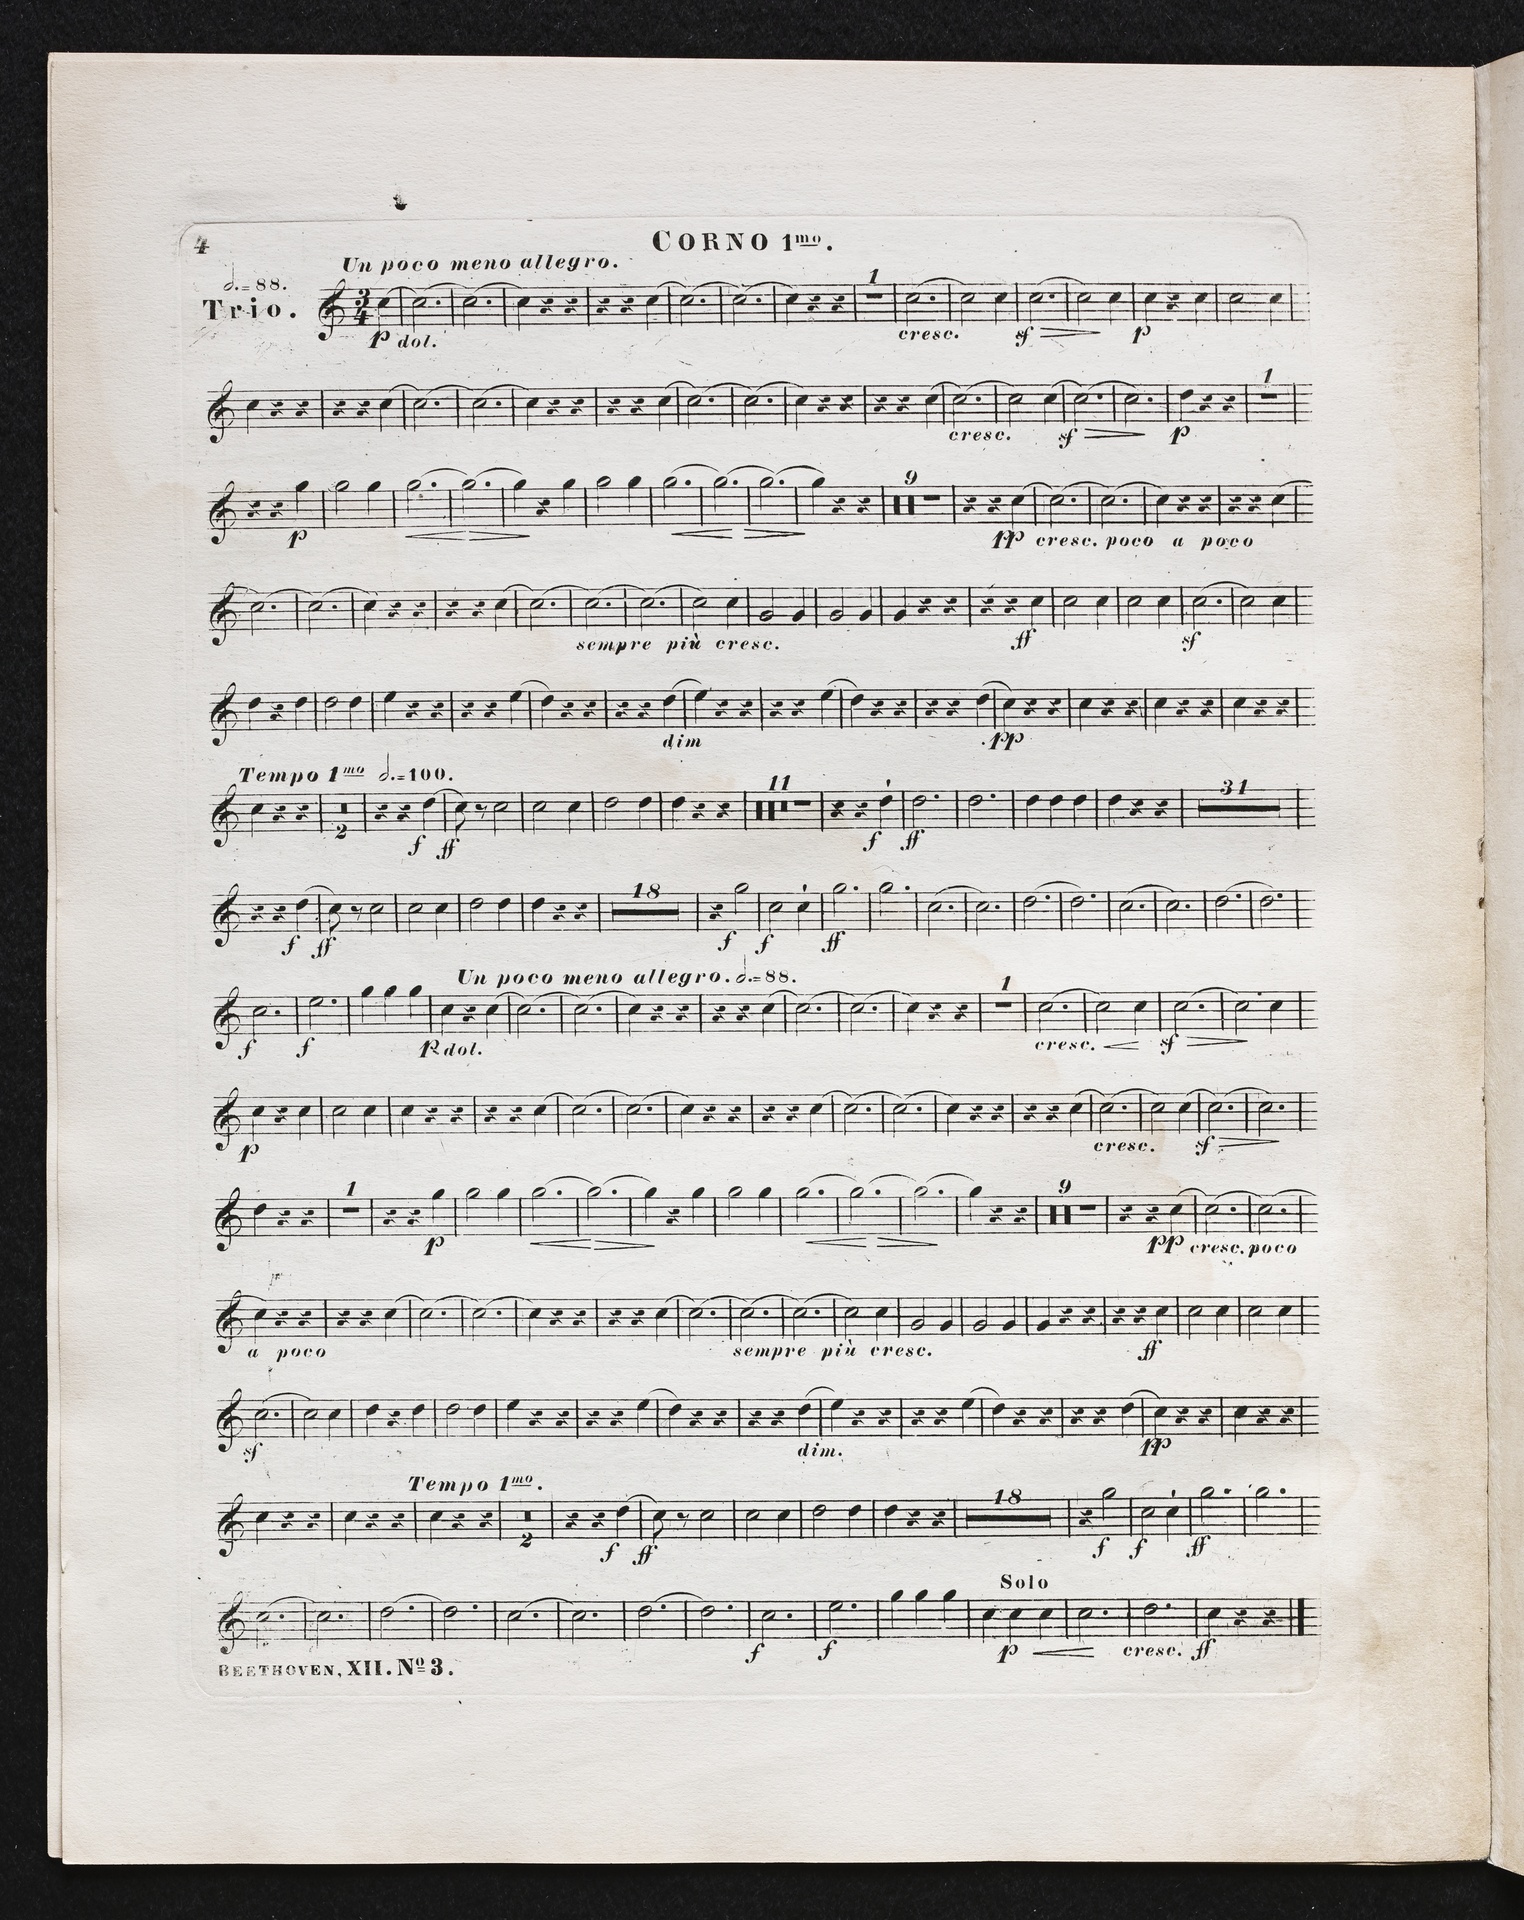 4
CORNO 1mo.
Un poco meno allegro.
𝅗𝅥.=88.
Trio.
3/4
1
p dol.
cresc.
sf
p
1
cresc.
sf
p
9
p
pp cresc. poco a poco
sempre più cresc.
ff
sf
dim
pp
Tempo 1mo 𝅗𝅥.=100.
11
31
2
f
ff
f
ff
18
f
ff
f
f
ff
Un poco meno allegro. 𝅗𝅥.=88.
1
f
f
p dol.
cresc.
sf
p
cresc.
sf
1
9
p
pp cresc. poco
a poco
sempre più cresc.
ff
sf
dim.
pp
Tempo 1mo.
18
2
f
ff
f
f
ff
Solo
f
f
p
cresc. ff
BEETHOVEN, XII. No 3.